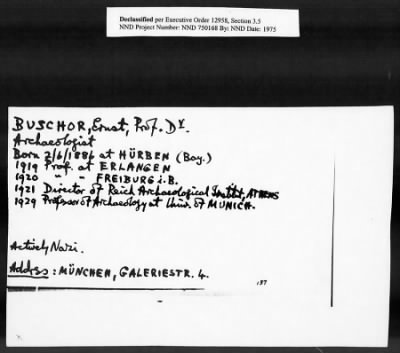 Declassified per Executive Order 12958, Section 3.5
NND Project Number: NND 750168 By: NND Date: 1975
BUSCHOR, Ernst, Prof. Dr.
Archaeologist
Born 2/6/1886 at HÜRBEN (Bay.)
1919 Prof. at ERLANGEN
1920 " " FREIBURG i.B.
1921 Director of Reich Archaeological Institut, ATHENS
1929 Professor of Archaeology at Univ. of MUNICH.
Actively Nazi.
Address: MÜNCHEN, GALERIESTR. 4.
137